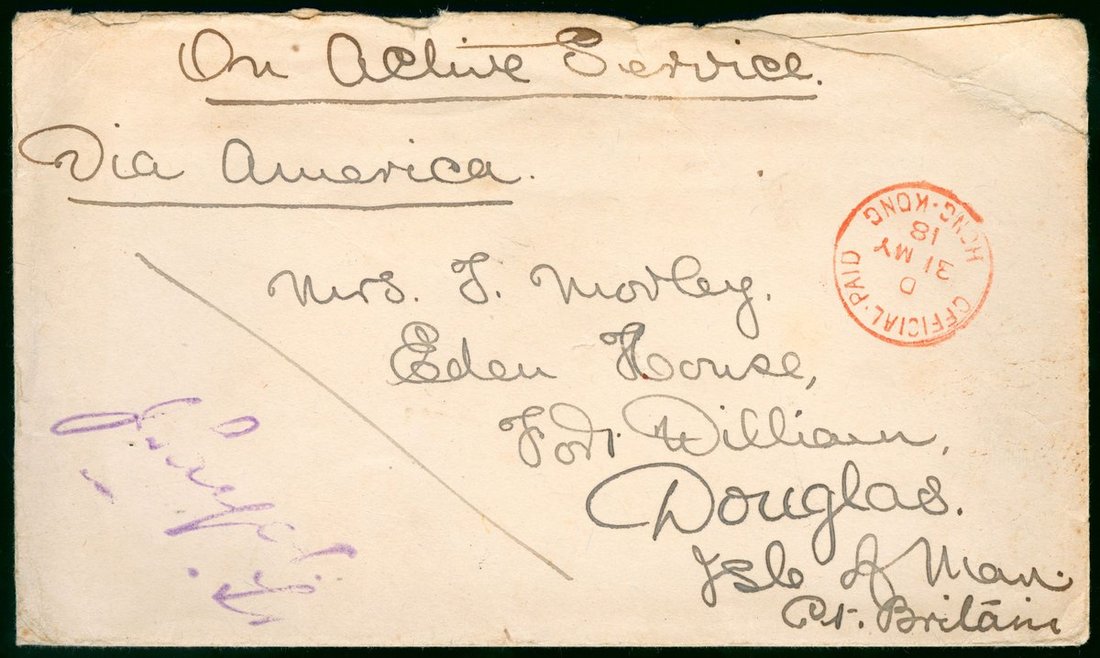 On Active Service.
Via America.
Mrs. J. Morley.
Eden House,
Fort William,
Douglas.
Isle of Man.
Gt. Britain
HONG·KONG
OFFICIAL·PAID
D
31 MY
18